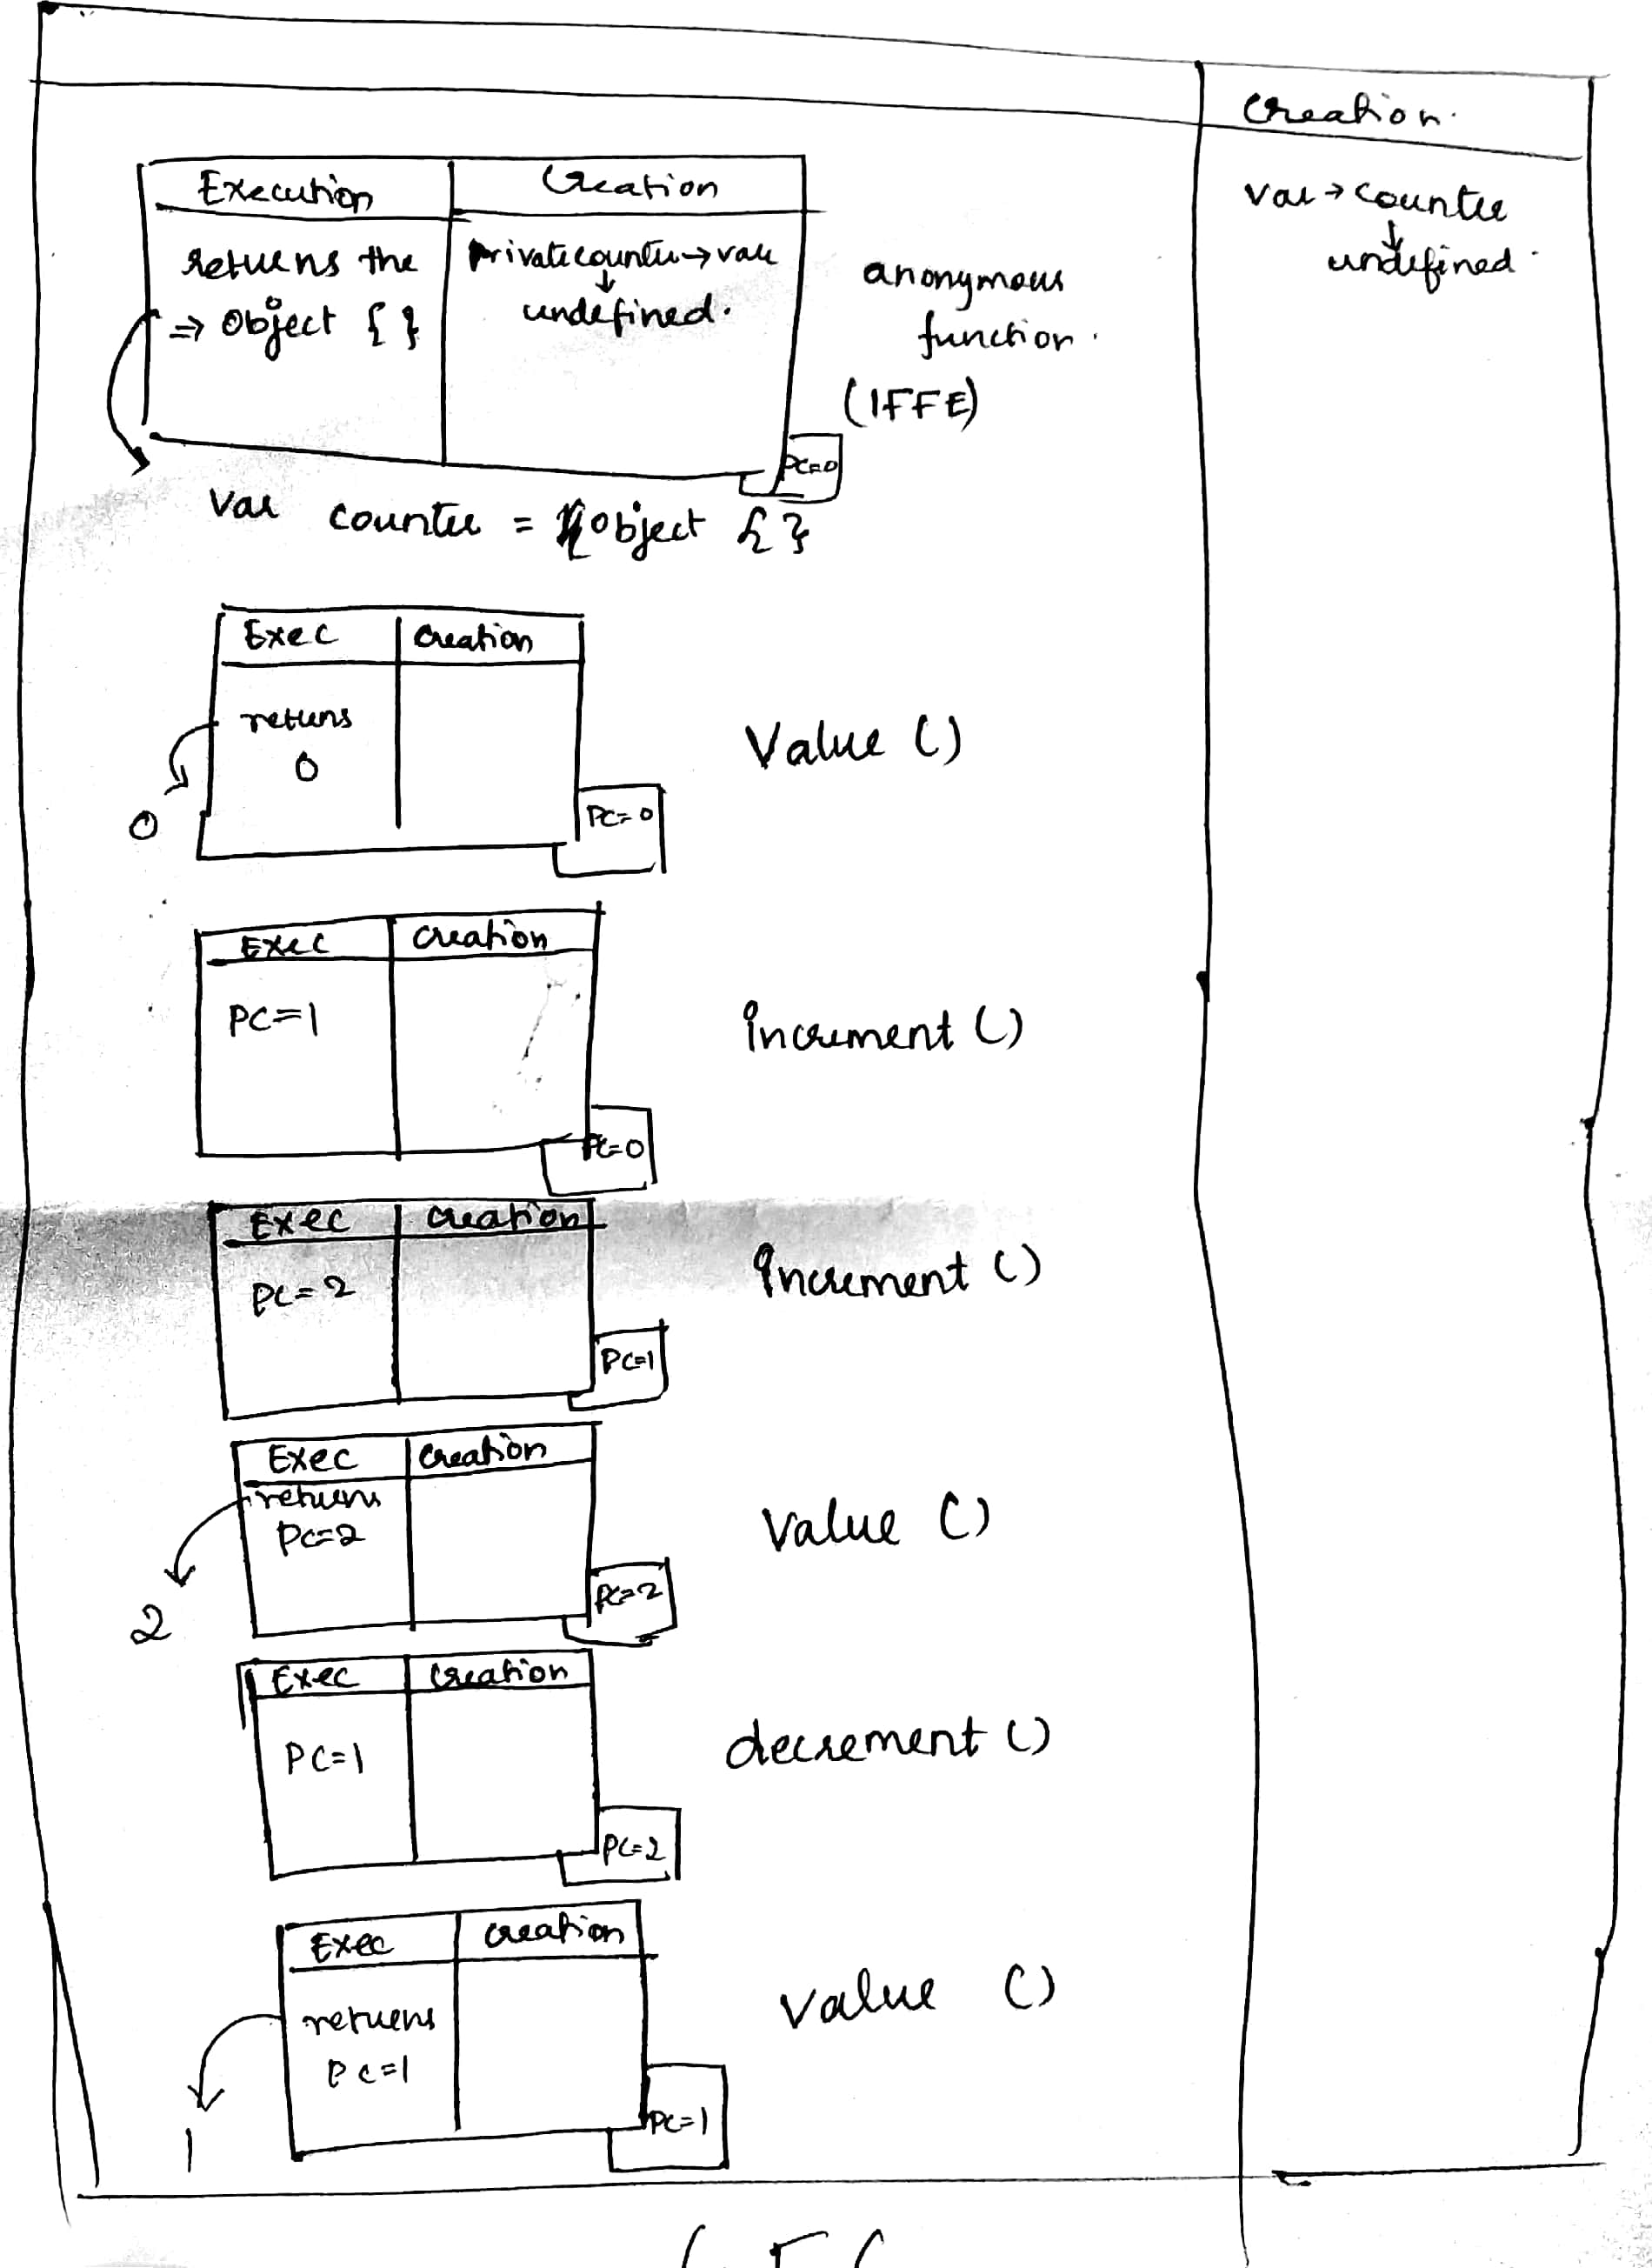 Creation.
var → counter
↓
undefined.
Execution
Creation
returns the
⇒ Object { }
privatecounter → var
↓
undefined.
anonymous
function.
(IFFE)
PC=0
Var counter = Object { }
Exec
Creation
returns
0
0
PC=0
Value ()
Exec
Creation
PC=1
PC=0
Increment ()
Exec
Creation
PC=2
PC=1
Increment ()
Exec
Creation
returns
PC=2
2
PC=2
Value ()
Exec
Creation
PC=1
PC=2
decrement ()
Exec
Creation
returns
PC=1
1
PC=1
Value ()